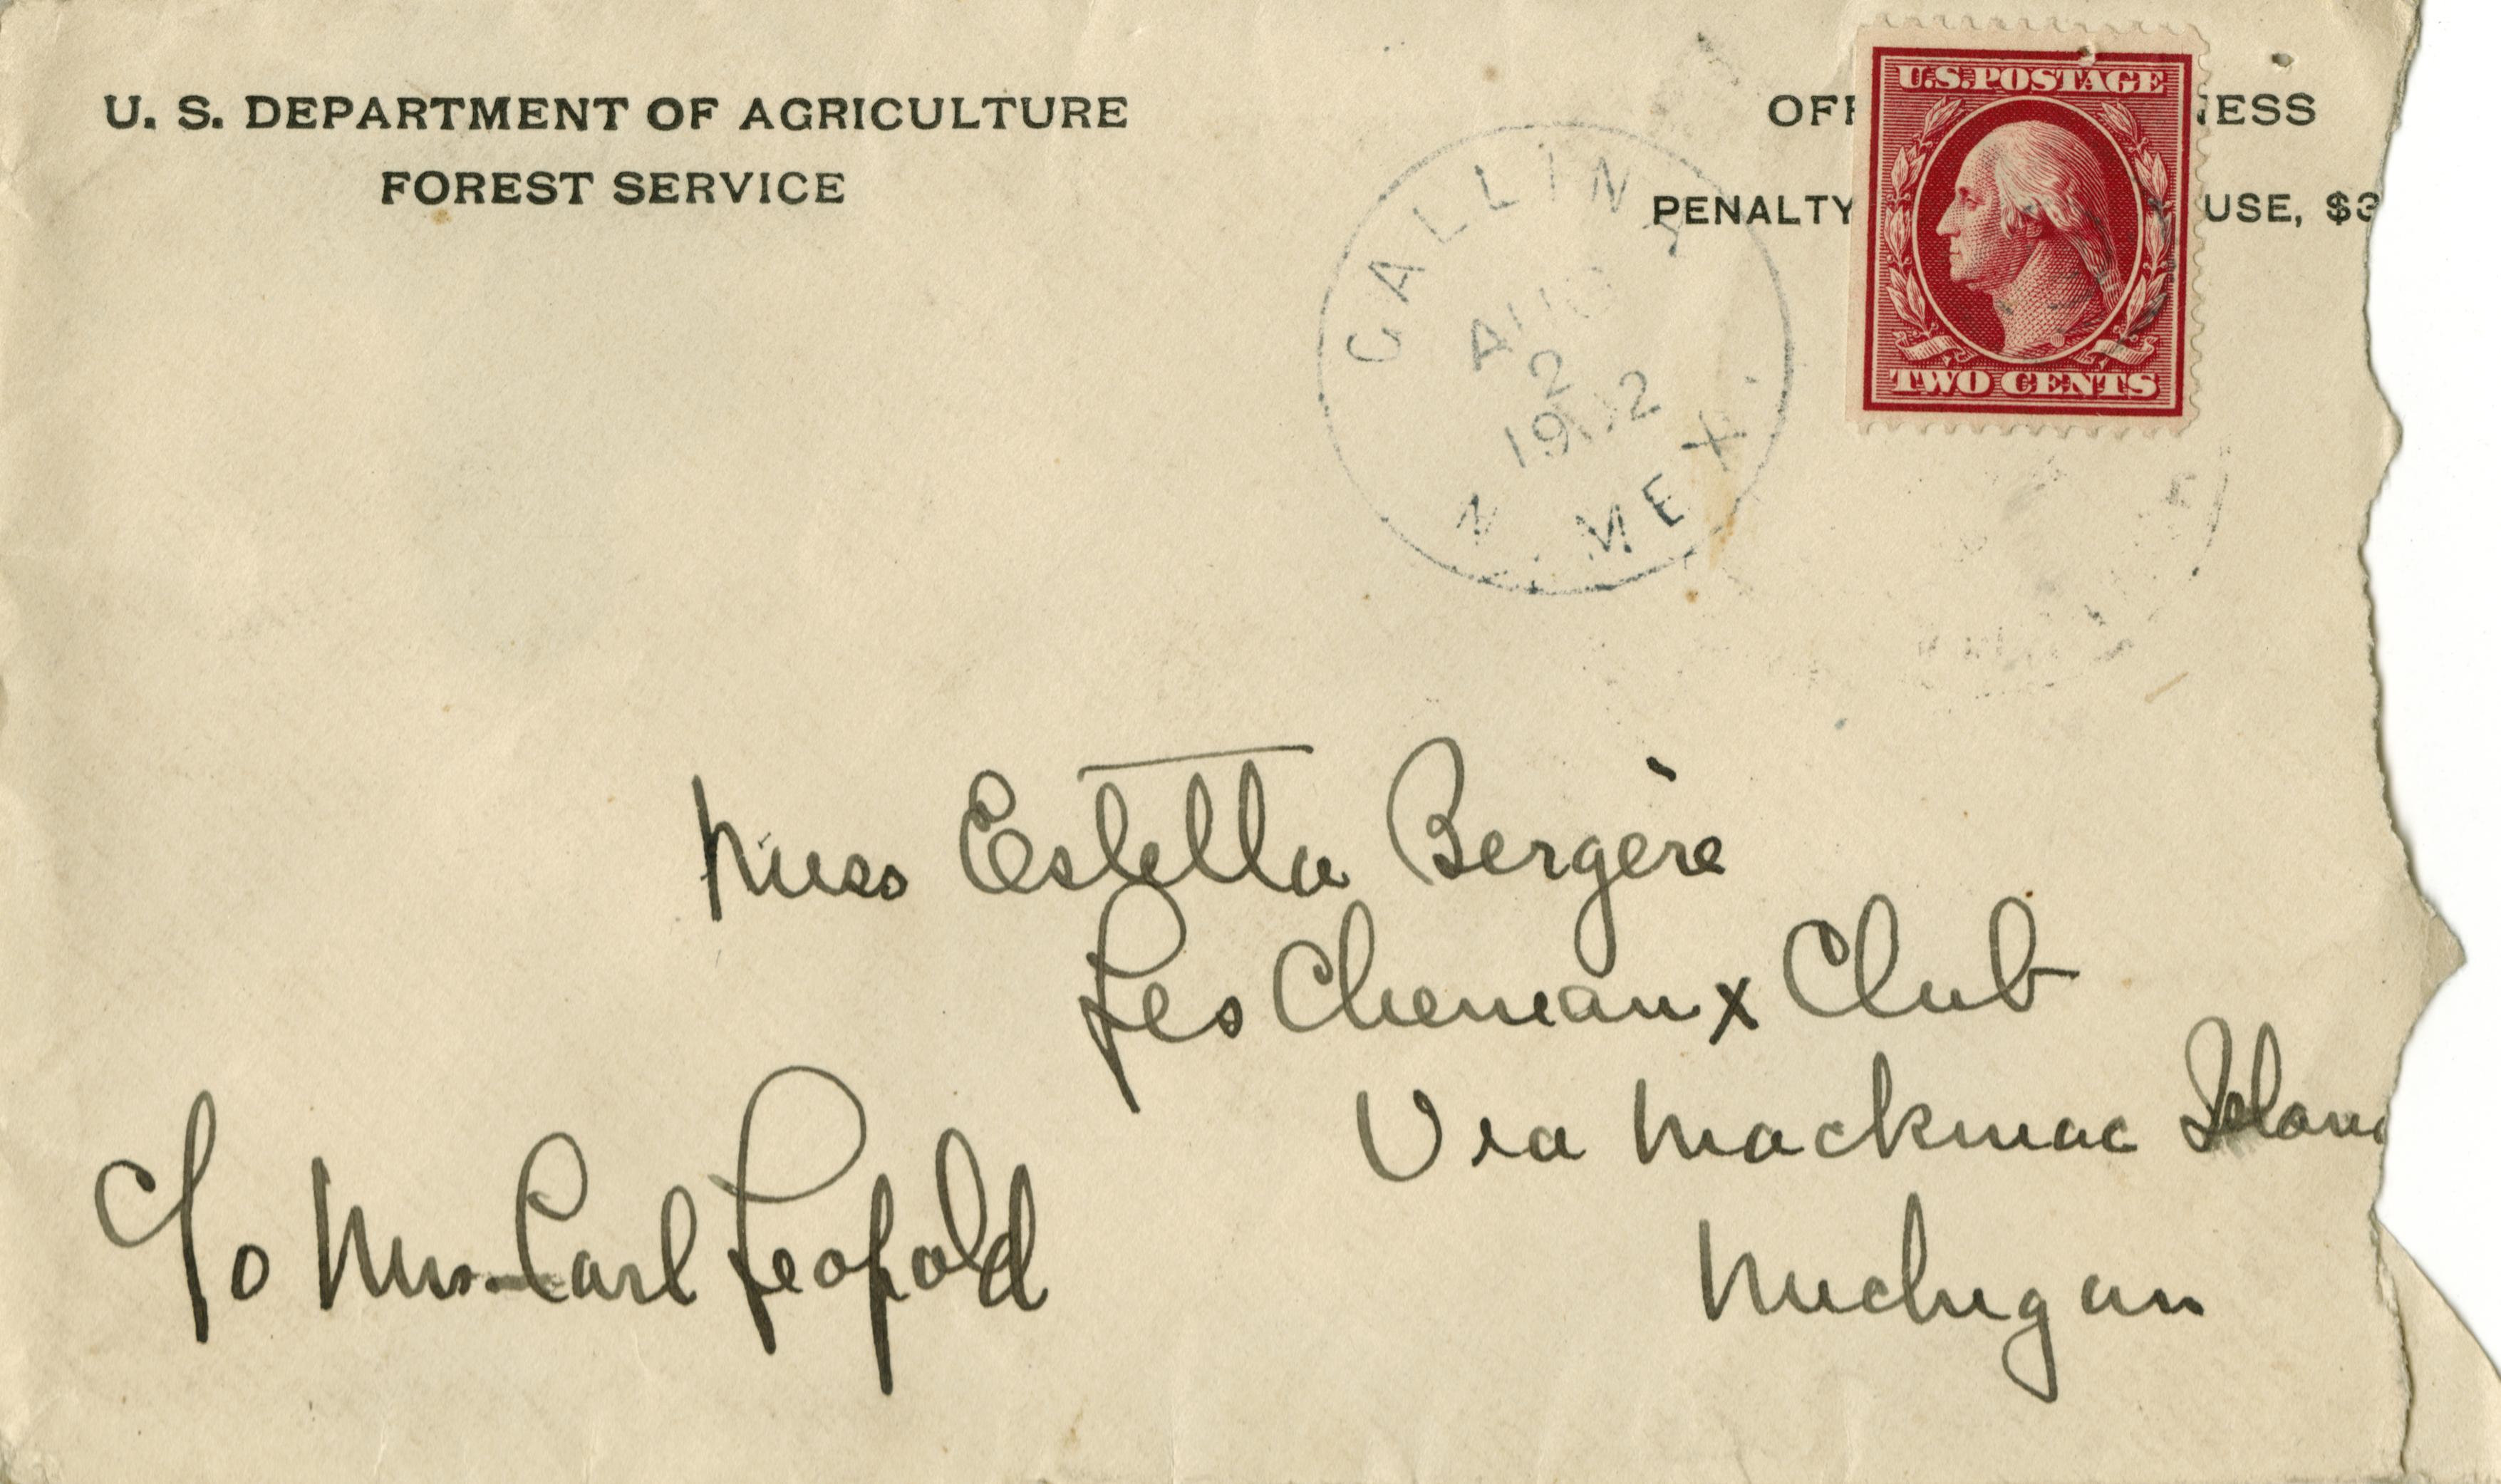 U. S. DEPARTMENT OF AGRICULTURE
FOREST SERVICE
OFF
NESS
PENALTY
USE, $3
U.S. POSTAGE
TWO CENTS
GALLINA
AUG
2
1912
N. MEX.
Miss Estella Bergère
Les Cheneaux Club
Via Mackinac Islan
Michigan
c/o Mrs. Carl Leopold